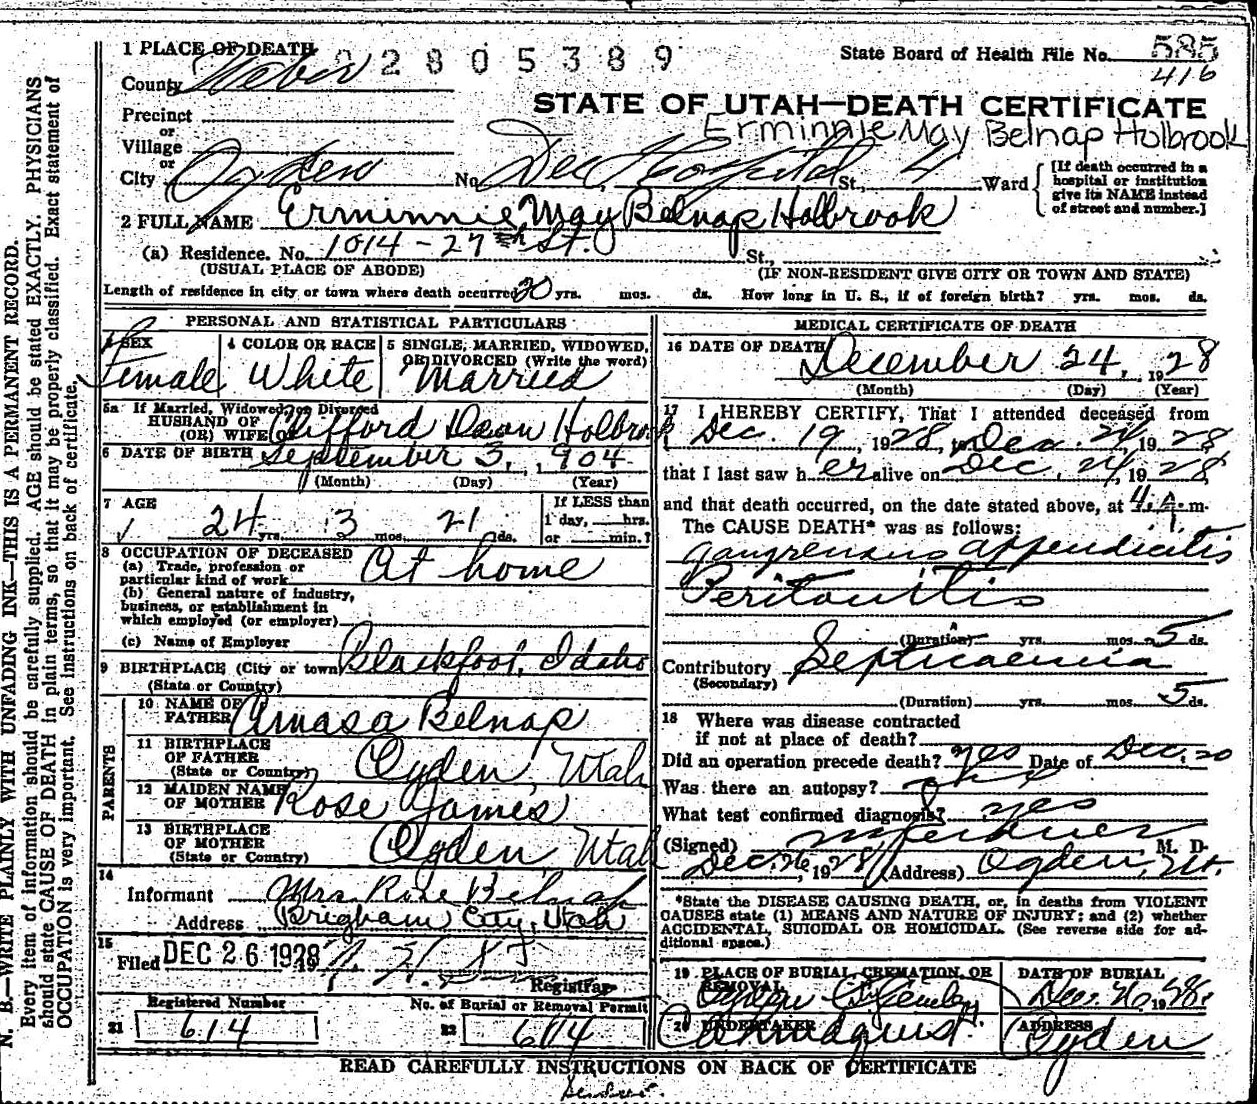 1 PLACE OF DEATH
2805389
State Board of Health File No. 585
416
County Weber
STATE OF UTAH—DEATH CERTIFICATE
Precinct
Erminnie May Belnap Holbrook
or
Village
or
City Ogden No. Dee Hospital St., 4 Ward
[If death occurred in a hospital or institution give its NAME instead of street and number.]
2 FULL NAME Erminnie May Belnap Holbrook
(a) Residence. No. 1014 - 27th St. St.,
(USUAL PLACE OF ABODE) (IF NON-RESIDENT GIVE CITY OR TOWN AND STATE)
Length of residence in city or town where death occurred 20 yrs. mos. ds. How long in U. S., if of foreign birth? yrs. mos. ds.
PERSONAL AND STATISTICAL PARTICULARS
3 SEX 4 COLOR OR RACE 5 SINGLE, MARRIED, WIDOWED, OR DIVORCED (Write the word)
Female White Married
5a If Married, Widowed or Divorced
HUSBAND OF
(OR) WIFE OF Clifford Dean Holbrook
6 DATE OF BIRTH September 3, 1904
(Month) (Day) (Year)
7 AGE If LESS than
24 yrs. 3 mos. 21 ds. 1 day, hrs.
or min.?
8 OCCUPATION OF DECEASED
(a) Trade, profession or
particular kind of work At home
(b) General nature of industry,
business, or establishment in
which employed (or employer)
(c) Name of Employer
9 BIRTHPLACE (City or town) Blackfoot, Idaho
(State or Country)
PARENTS
10 NAME OF
FATHER Amasa Belnap
11 BIRTHPLACE
OF FATHER
(State or Country) Ogden, Utah
12 MAIDEN NAME
OF MOTHER Rose James
13 BIRTHPLACE
OF MOTHER
(State or Country) Ogden, Utah
14
Informant Mrs Rose Belnap
Address Brigham City, Utah
15
Filed DEC 26 1928
Registrar
Registered Number No. of Burial or Removal Permit
21 614 22 604
MEDICAL CERTIFICATE OF DEATH
16 DATE OF DEATH December 24, 1928
(Month) (Day) (Year)
17 I HEREBY CERTIFY, That I attended deceased from
Dec. 19, 1928, to Dec. 24, 1928
that I last saw her alive on Dec. 24, 1928
and that death occurred, on the date stated above, at 4 A. m.
The CAUSE DEATH* was as follows:
Gangrenous appendicitis
Peritonitis
(Duration) yrs. mos. 5 ds.
Contributory Septicaemia
(Secondary)
(Duration) yrs. mos. 5 ds.
18 Where was disease contracted
if not at place of death?
Did an operation precede death? yes Date of Dec. 20
Was there an autopsy?
What test confirmed diagnosis? yes
(Signed) M. D.
Dec. 26, 1928 (Address) Ogden, Ut.
*State the DISEASE CAUSING DEATH, or, in deaths from VIOLENT
CAUSES state (1) MEANS AND NATURE OF INJURY; and (2) whether
ACCIDENTAL, SUICIDAL OR HOMICIDAL. (See reverse side for ad-
ditional space.)
19 PLACE OF BURIAL, CREMATION, OR REMOVAL DATE OF BURIAL
Ogden City Cemetery Dec. 26 1928
20 UNDERTAKER ADDRESS
Lindquist Ogden
READ CAREFULLY INSTRUCTIONS ON BACK OF CERTIFICATE
N. B.—WRITE PLAINLY WITH UNFADING INK—THIS IS A PERMANENT RECORD.
Every item of information should be carefully supplied. AGE should be stated EXACTLY. PHYSICIANS
should state CAUSE OF DEATH in plain terms, so that it may be properly classified. Exact statement of
OCCUPATION is very important. See instructions on back of certificate.